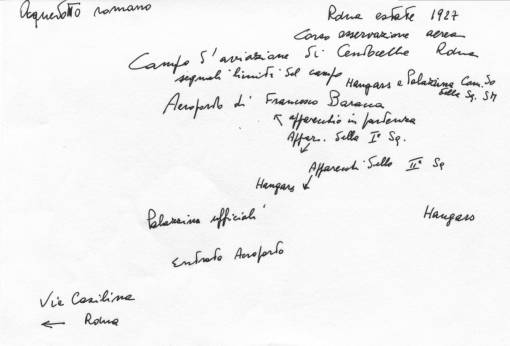 Acquedotto romano
Roma estate 1927
Corso osservazione aerea
Campo d'aviazione di Centocelle Roma
segnali limiti del campo
Hangars e Palazzina Com.do
della Sq. SM
Aeroporto di Francesco Baracca
↖ apparecchio in partenza
Appar. della Iª Sq.
↙
Apparecchi della IIª Sq
Hangars ↙
Palazzina ufficiali
Hangars
Entrata Aeroporto
Via Casilina
← Roma